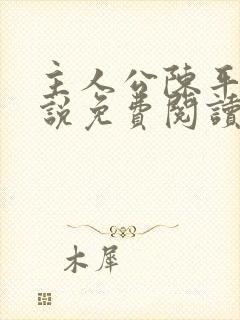 主人公陳平
說免費閱讀
木犀